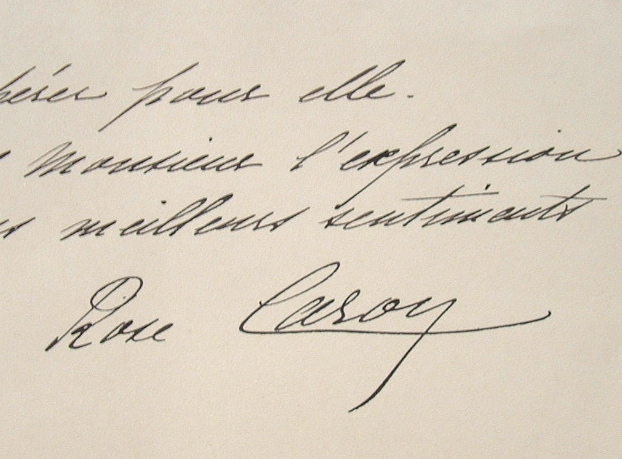 pérer pour elle.
monsieur l'expression
meilleurs sentiments
Rose Caron